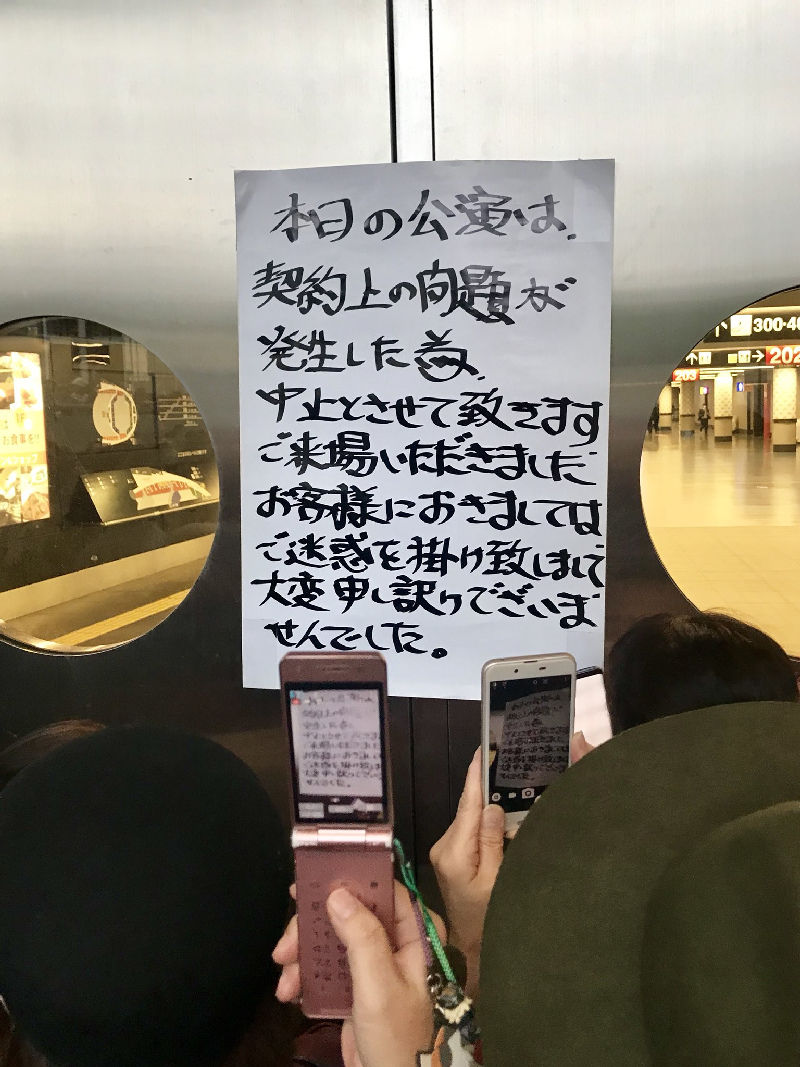 本日の公演は、
契約上の問題が
発生した為、
中止とさせて致きます
ご来場いただきました
お客様におきましては
ご迷惑を掛け致しまして
大変申し訳りでございま
せんでした。
300-40
202
203
お食事を!!